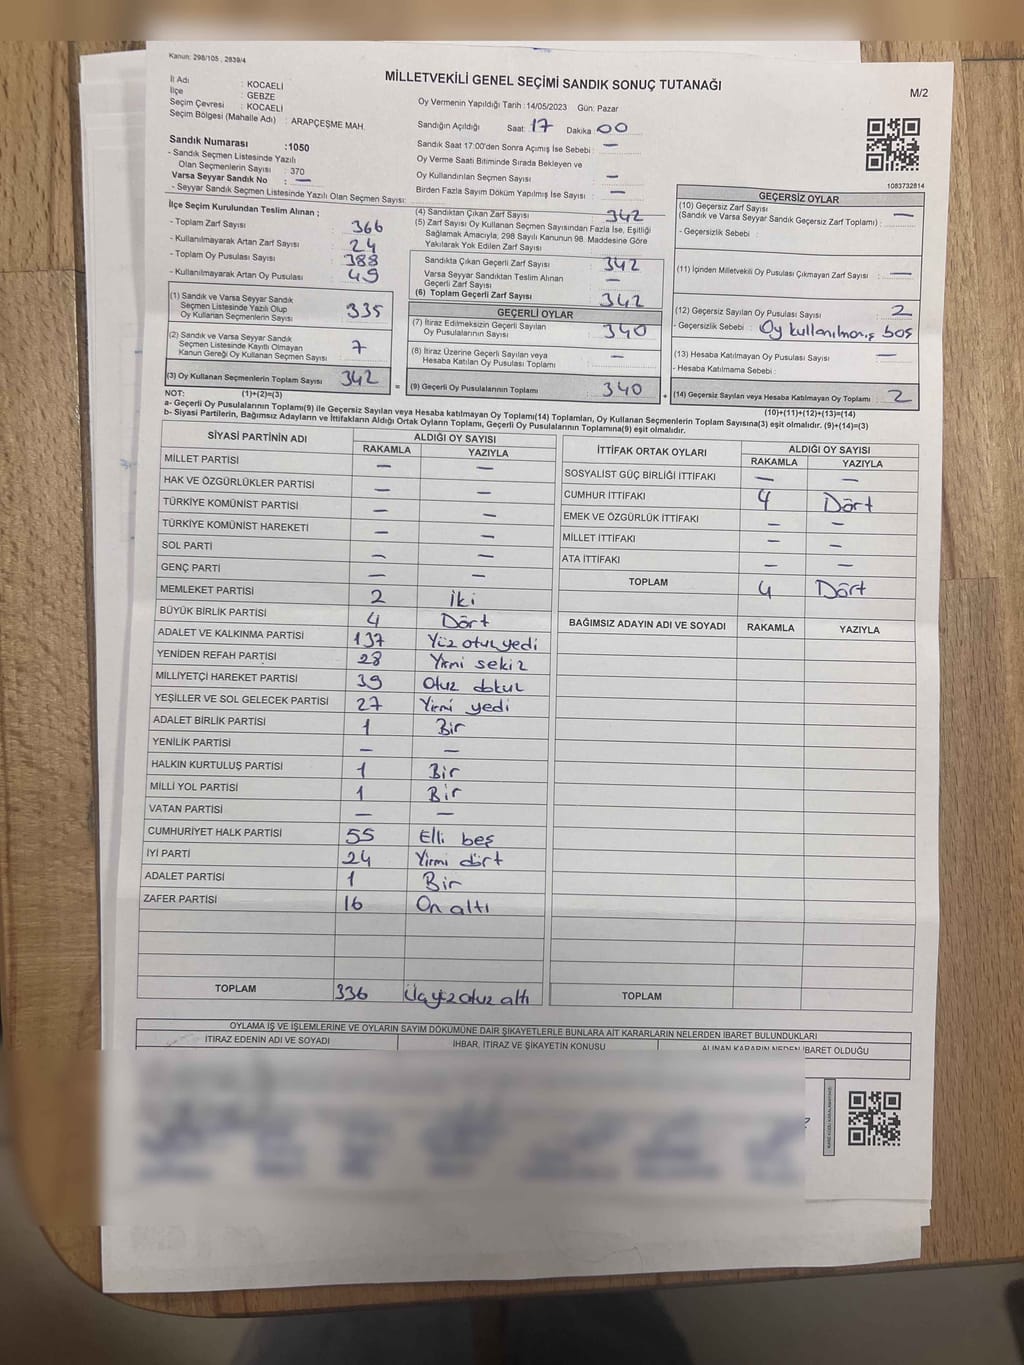 Kanun: 298/105 , 2839/4
MİLLETVEKİLİ GENEL SEÇİMİ SANDIK SONUÇ TUTANAĞI
M/2
İl Adı : KOCAELİ
İlçe : GEBZE
Seçim Çevresi : KOCAELİ
Seçim Bölgesi (Mahalle Adı) : ARAPÇEŞME MAH.
Sandık Numarası :1050
- Sandık Seçmen Listesinde Yazılı
Olan Seçmenlerin Sayısı : 370
Varsa Seyyar Sandık No : —
- Seyyar Sandık Seçmen Listesinde Yazılı Olan Seçmen Sayısı:
Oy Vermenin Yapıldığı Tarih :14/05/2023 Gün: Pazar
Sandığın Açıldığı Saat: 17 Dakika 00
Sandık Saat 17:00'den Sonra Açımış İse Sebebi : —
Oy Verme Saati Bitiminde Sırada Bekleyen ve
Oy Kullandırılan Seçmen Sayısı : —
Birden Fazla Sayım Döküm Yapılmış İse Sayısı : —
1083732814
İlçe Seçim Kurulundan Teslim Alınan ;
- Toplam Zarf Sayısı : 366
- Kullanılmayarak Artan Zarf Sayısı : 24
- Toplam Oy Pusulası Sayısı : 388
- Kullanılmayarak Artan Oy Pusulası : 49
(1) Sandık ve Varsa Seyyar Sandık
Seçmen Listesinde Yazılı Olup
Oy Kullanan Seçmenlerin Sayısı : 335
(2) Sandık ve Varsa Seyyar Sandık
Seçmen Listesinde Kayıtlı Olmayan
Kanun Gereği Oy Kullanan Seçmen Sayısı : 7
(3) Oy Kullanan Seçmenlerin Toplam Sayısı : 342
(4) Sandıktan Çıkan Zarf Sayısı : 342
(5) Zarf Sayısı Oy Kullanan Seçmen Sayısından Fazla İse, Eşitliği
Sağlamak Amacıyla, 298 Sayılı Kanunun 98. Maddesine Göre
Yakılarak Yok Edilen Zarf Sayısı
Sandıkta Çıkan Geçerli Zarf Sayısı : 342
Varsa Seyyar Sandıktan Teslim Alınan
Geçerli Zarf Sayısı : —
(6) Toplam Geçerli Zarf Sayısı : 342
GEÇERLİ OYLAR
(7) İtiraz Edilmeksizin Geçerli Sayılan
Oy Pusulalarının Sayısı : 340
(8) İtiraz Üzerine Geçerli Sayılan veya
Hesaba Katılan Oy Pusulası Toplamı : —
= (9) Geçerli Oy Pusulalarının Toplamı : 340
GEÇERSİZ OYLAR
(10) Geçersiz Zarf Sayısı
(Sandık ve Varsa Seyyar Sandık Geçersiz Zarf Toplamı) : —
- Geçersizlik Sebebi :
(11) İçinden Milletvekili Oy Pusulası Çıkmayan Zarf Sayısı : —
(12) Geçersiz Sayılan Oy Pusulası Sayısı : 2
- Geçersizlik Sebebi : Oy kullanılmamış boş
(13) Hesaba Katılmayan Oy Pusulası Sayısı : —
- Hesaba Katılmama Sebebi :
+ (14) Geçersiz Sayılan veya Hesaba Katılmayan Oy Toplamı : 2
NOT: (1)+(2)=(3) (10)+(11)+(12)+(13)=(14)
a- Geçerli Oy Pusulalarının Toplamı(9) ile Geçersiz Sayılan veya Hesaba katılmayan Oy Toplamı(14) Toplamları, Oy Kullanan Seçmenlerin Toplam Sayısına(3) eşit olmalıdır. (9)+(14)=(3)
b- Siyasi Partilerin, Bağımsız Adayların ve İttifakların Aldığı Ortak Oyların Toplamı, Geçerli Oy Pusulalarının Toplamına(9) eşit olmalıdır.
SİYASİ PARTİNİN ADI ALDIĞI OY SAYISI
RAKAMLA YAZIYLA
MİLLET PARTİSİ — —
HAK VE ÖZGÜRLÜKLER PARTİSİ — —
TÜRKİYE KOMÜNİST PARTİSİ — —
TÜRKİYE KOMÜNİST HAREKETİ — —
SOL PARTİ — —
GENÇ PARTİ — —
MEMLEKET PARTİSİ 2 İki
BÜYÜK BİRLİK PARTİSİ 4 Dört
ADALET VE KALKINMA PARTİSİ 137 Yüz otuz yedi
YENİDEN REFAH PARTİSİ 28 Yirmi sekiz
MİLLİYETÇİ HAREKET PARTİSİ 39 Otuz dokuz
YEŞİLLER VE SOL GELECEK PARTİSİ 27 Yirmi yedi
ADALET BİRLİK PARTİSİ 1 Bir
YENİLİK PARTİSİ — —
HALKIN KURTULUŞ PARTİSİ 1 Bir
MİLLİ YOL PARTİSİ 1 Bir
VATAN PARTİSİ — —
CUMHURİYET HALK PARTİSİ 55 Elli beş
İYİ PARTİ 24 Yirmi dört
ADALET PARTİSİ 1 Bir
ZAFER PARTİSİ 16 On altı
TOPLAM 336 Üçyüz otuz altı
İTTİFAK ORTAK OYLARI ALDIĞI OY SAYISI
RAKAMLA YAZIYLA
SOSYALİST GÜÇ BİRLİĞİ İTTİFAKI — —
CUMHUR İTTİFAKI 4 Dört
EMEK VE ÖZGÜRLÜK İTTİFAKI — —
MİLLET İTTİFAKI — —
ATA İTTİFAKI — —
TOPLAM 4 Dört
BAĞIMSIZ ADAYIN ADI VE SOYADI RAKAMLA YAZIYLA
TOPLAM
OYLAMA İŞ VE İŞLEMLERİNE VE OYLARIN SAYIM DÖKÜMÜNE DAİR ŞİKAYETLERLE BUNLARA AİT KARARLARIN NELERDEN İBARET BULUNDUKLARI
İTİRAZ EDENİN ADI VE SOYADI İHBAR, İTİRAZ VE ŞİKAYETİN KONUSU ALINAN KARARIN NEDEN İBARET OLDUĞU